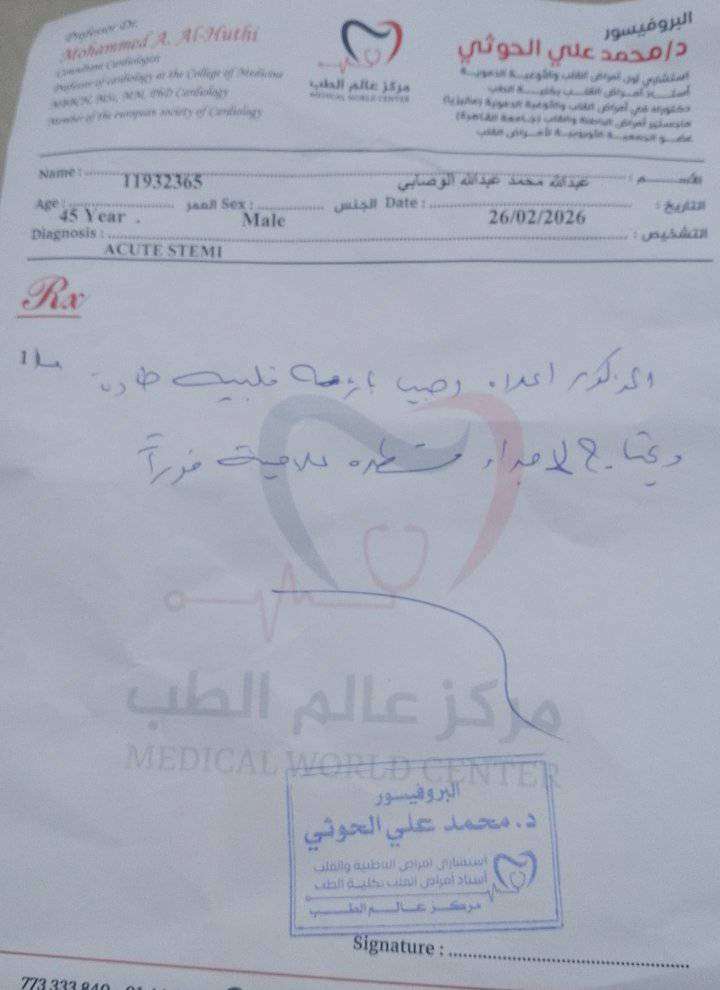 Professor Dr.
Mohammed A. Al-Huthi
Consultant Cardiologist
Professor of cardiology at the College of Medicine
MBBCH, MSc, MM, PhD Cardiology
Member of the european society of Cardiology
مركز عالم الطب
MEDICAL WORLD CENTER
البروفيسور
د/محمد علي الحوثي
استشاري أول أمراض القلب والأوعية الدموية
أستاذ أمراض القلب بكلية الطب
دكتوراه في أمراض القلب والأوعية الدموية (ماليزيا)
ماجستير أمراض الباطنة والقلب (جامعة القاهرة)
عضو الجمعية الأوروبية لأمراض القلب
Name : 11932365 عبدالله محمد عبدالله الوصابي الأســـم :
Age : 45 Year . العمر Sex : Male الجنس Date : 26/02/2026 التاريخ :
Diagnosis : ACUTE STEMI التشخيص :
Rx
1
المذكور اعلاه اصيب بازمة قلبية حادة
ويحتاج لاجراء قسطرة علاجية فوراً
مركز عالم الطب
MEDICAL WORLD CENTER
البروفيسور
د. محمد علي الحوثي
استشاري أمراض الباطنية والقلب
أستاذ أمراض القلب بكلية الطب
مركز عالم الطب
Signature :
773 333 840